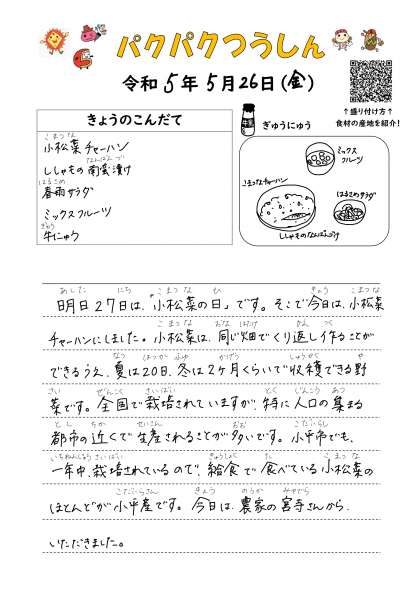 パクパクつうしん
令和5年5月26日(金)
↑盛り付け方↑
食材の産地を紹介!
きょうのこんだて
小松菜チャーハン
ししゃもの南蛮漬け
春雨サラダ
ミックスフルーツ
牛にゅう
ぎゅうにゅう
ミックス
フルーツ
こまつなチャーハン
はるさめサラダ
ししゃものなんばんづけ
明日27日は、「小松菜の日」です。そこで今日は、小松菜
チャーハンにしました。小松菜は、同じ畑でくり返し作ることが
できるうえ、夏は20日、冬は2ヶ月くらいで収穫できる野
菜です。全国で栽培されていますが、特に人口の集まる
都市の近くで生産されることが多いです。小平市でも、
一年中、栽培されているので、給食で食べている小松菜の
ほとんどが小平産です。今日は、農家の宮寺さんから、
いただきました。